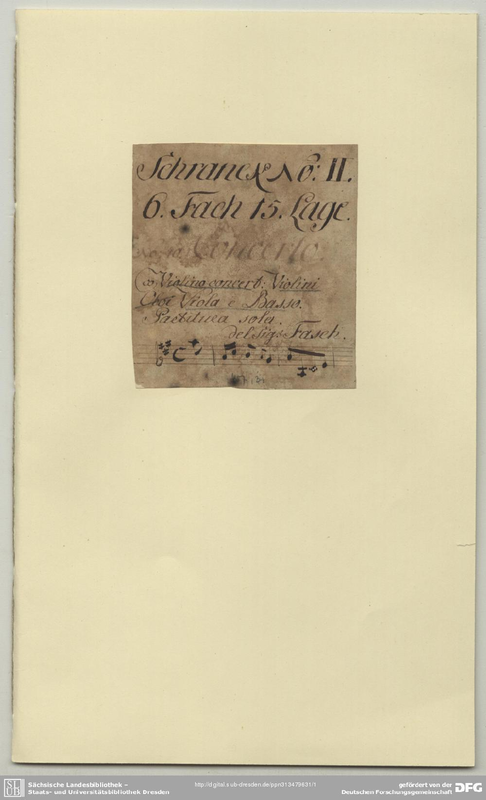 Schranck No: II.
6. Fach 15. Lage.
Concerto.
Co Violino concert: Violini
Oboi Viola e Basso.
Partitura sola.
del Sigr Fasch.
Sächsische Landesbibliothek –
Staats- und Universitätsbibliothek Dresden
http://digital.slub-dresden.de/ppn313479631/1
gefördert von der
Deutschen Forschungsgemeinschaft
DFG